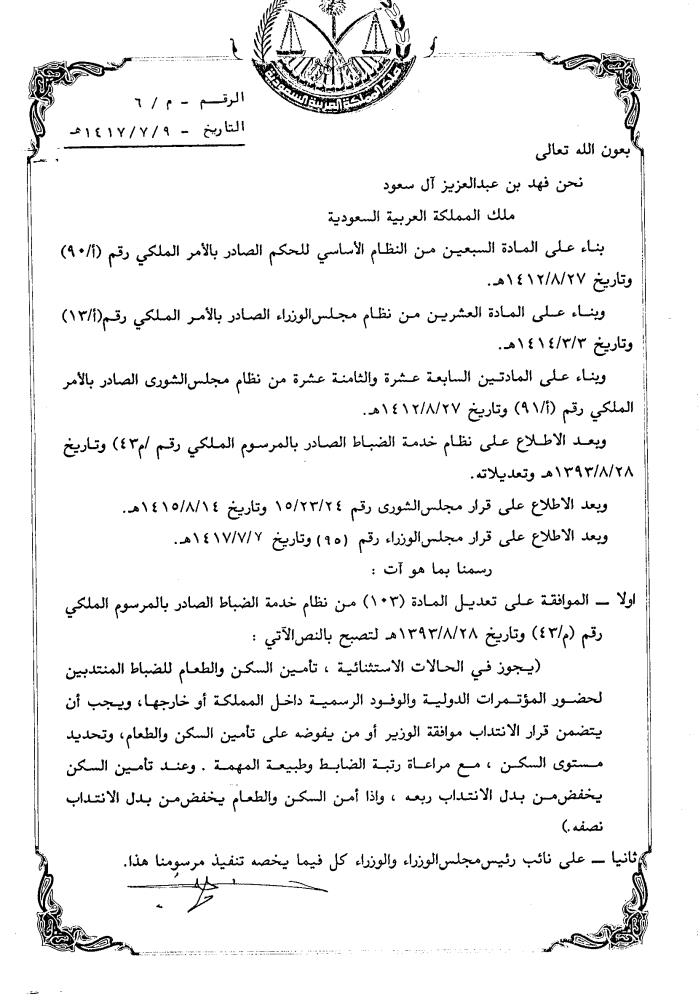 ملك المملكة العربية السعودية
الرقـــم - م / ٦
التاريخ - ١٤١٧/٧/٩هـ
بعون الله تعالى
نحن فهد بن عبدالعزيز آل سعود
ملك المملكة العربية السعودية
بناء على المادة السبعين من النظام الأساسي للحكم الصادر بالأمر الملكي رقم (أ/٩٠)
وتاريخ ١٤١٢/٨/٢٧هـ.
وبناء على المادة العشرين من نظام مجلس الوزراء الصادر بالأمر الملكي رقم(أ/١٣)
وتاريخ ١٤١٤/٣/٣هـ.
وبناء على المادتين السابعة عشرة والثامنة عشرة من نظام مجلس الشورى الصادر بالأمر
الملكي رقم (أ/٩١) وتاريخ ١٤١٢/٨/٢٧هـ.
وبعد الاطلاع على نظام خدمة الضباط الصادر بالمرسوم الملكي رقم /م٤٣) وتاريخ
١٣٩٣/٨/٢٨هـ وتعديلاته.
وبعد الاطلاع على قرار مجلس الشورى رقم ١٥/٢٣/٢٤ وتاريخ ١٤١٥/٨/١٤هـ.
وبعد الاطلاع على قرار مجلس الوزراء رقم (٩٥) وتاريخ ١٤١٧/٧/٧هـ.
رسمنا بما هو آت :
اولا ــ الموافقة على تعديل المادة (١٠٣) من نظام خدمة الضباط الصادر بالمرسوم الملكي
رقم (م/٤٣) وتاريخ ١٣٩٣/٨/٢٨هـ لتصبح بالنص الآتي :
(يجوز في الحالات الاستثنائية ، تأمين السكن والطعام للضباط المنتدبين
لحضور المؤتمرات الدولية والوفود الرسمية داخل المملكة أو خارجها، ويجب أن
يتضمن قرار الانتداب موافقة الوزير أو من يفوضه على تأمين السكن والطعام، وتحديد
مستوى السكن ، مع مراعاة رتبة الضابط وطبيعة المهمة . وعند تأمين السكن
يخفض من بدل الانتداب ربعه ، واذا أمن السكن والطعام يخفض من بدل الانتداب
نصفه.)
ثانيا ــ على نائب رئيس مجلس الوزراء والوزراء كل فيما يخصه تنفيذ مرسومنا هذا.